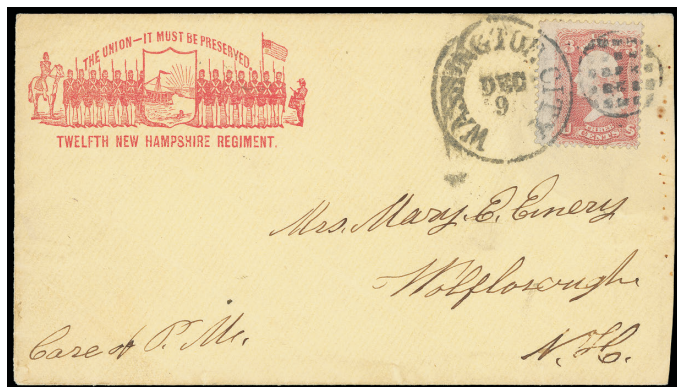 THE UNION—IT MUST BE PRESERVED.
TWELFTH NEW HAMPSHIRE REGIMENT.
WASHINGTON CITY
DEC
9
3
U S
THREE
CENTS
Mrs. Mary E. Emery
Wolfborough
N. H.
Care of P. M.